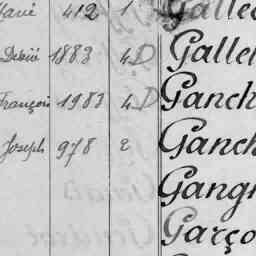 Marie 412 1 Gallec
Désiré 1883 4D Galle
François 1983 4D Ganch
Joseph 978 2 Ganch
Gang
Garço